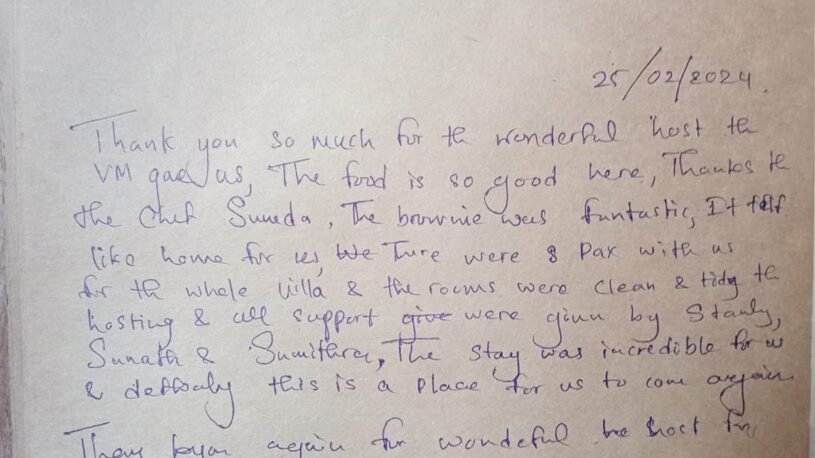 25/02/2024.
Thank you so much for the wonderful host the
VM gave us, The food is so good here, Thanks to
the Chef Suneda, The brownie was funtastic, It felt
like home for us, We There were 8 Pax with us
for the whole Villa & the rooms were clean & tidy the
hosting & all support give were givn by Stanly,
Sunath & Sumithra, The stay was incredible for us
& deffinaly this is a place for us to come again
again for wondeful host for